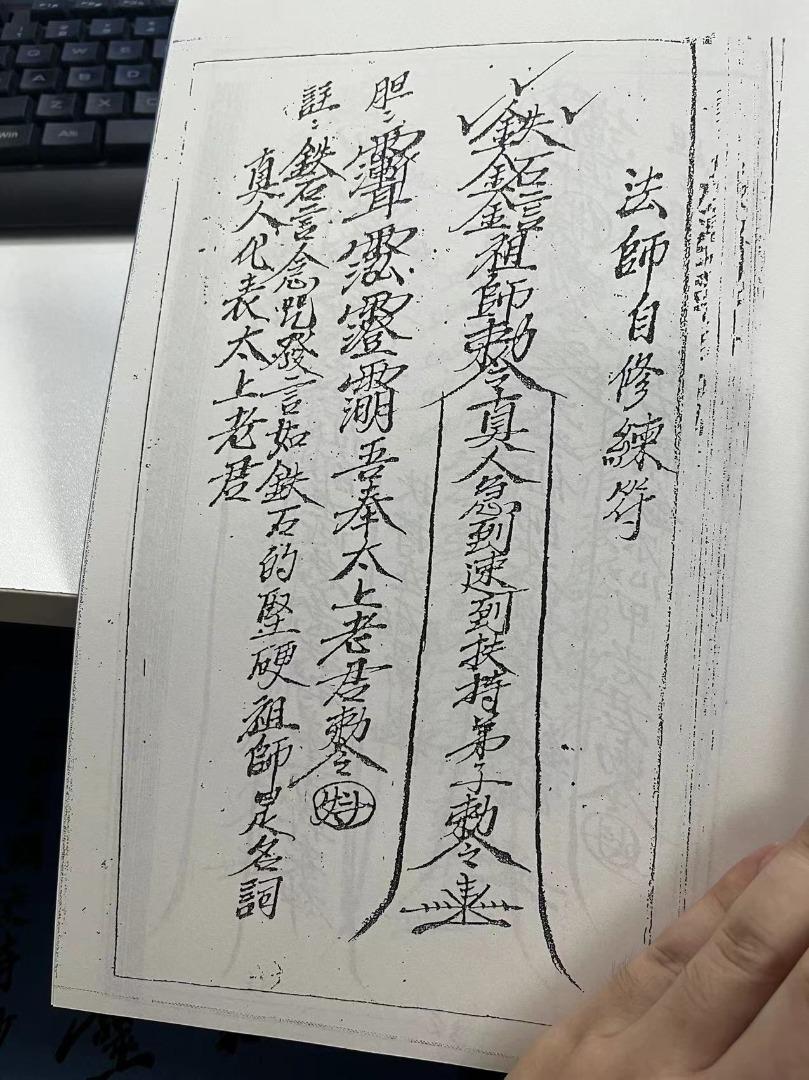 法師自修練符
鉄石言
金金金祖師敕令真人急到速到扶持弟子敕令
胆：
吾奉太上老君敕令
註：鉄石言念咒發言如鉄石的堅硬祖師是名詞
真人代表太上老君